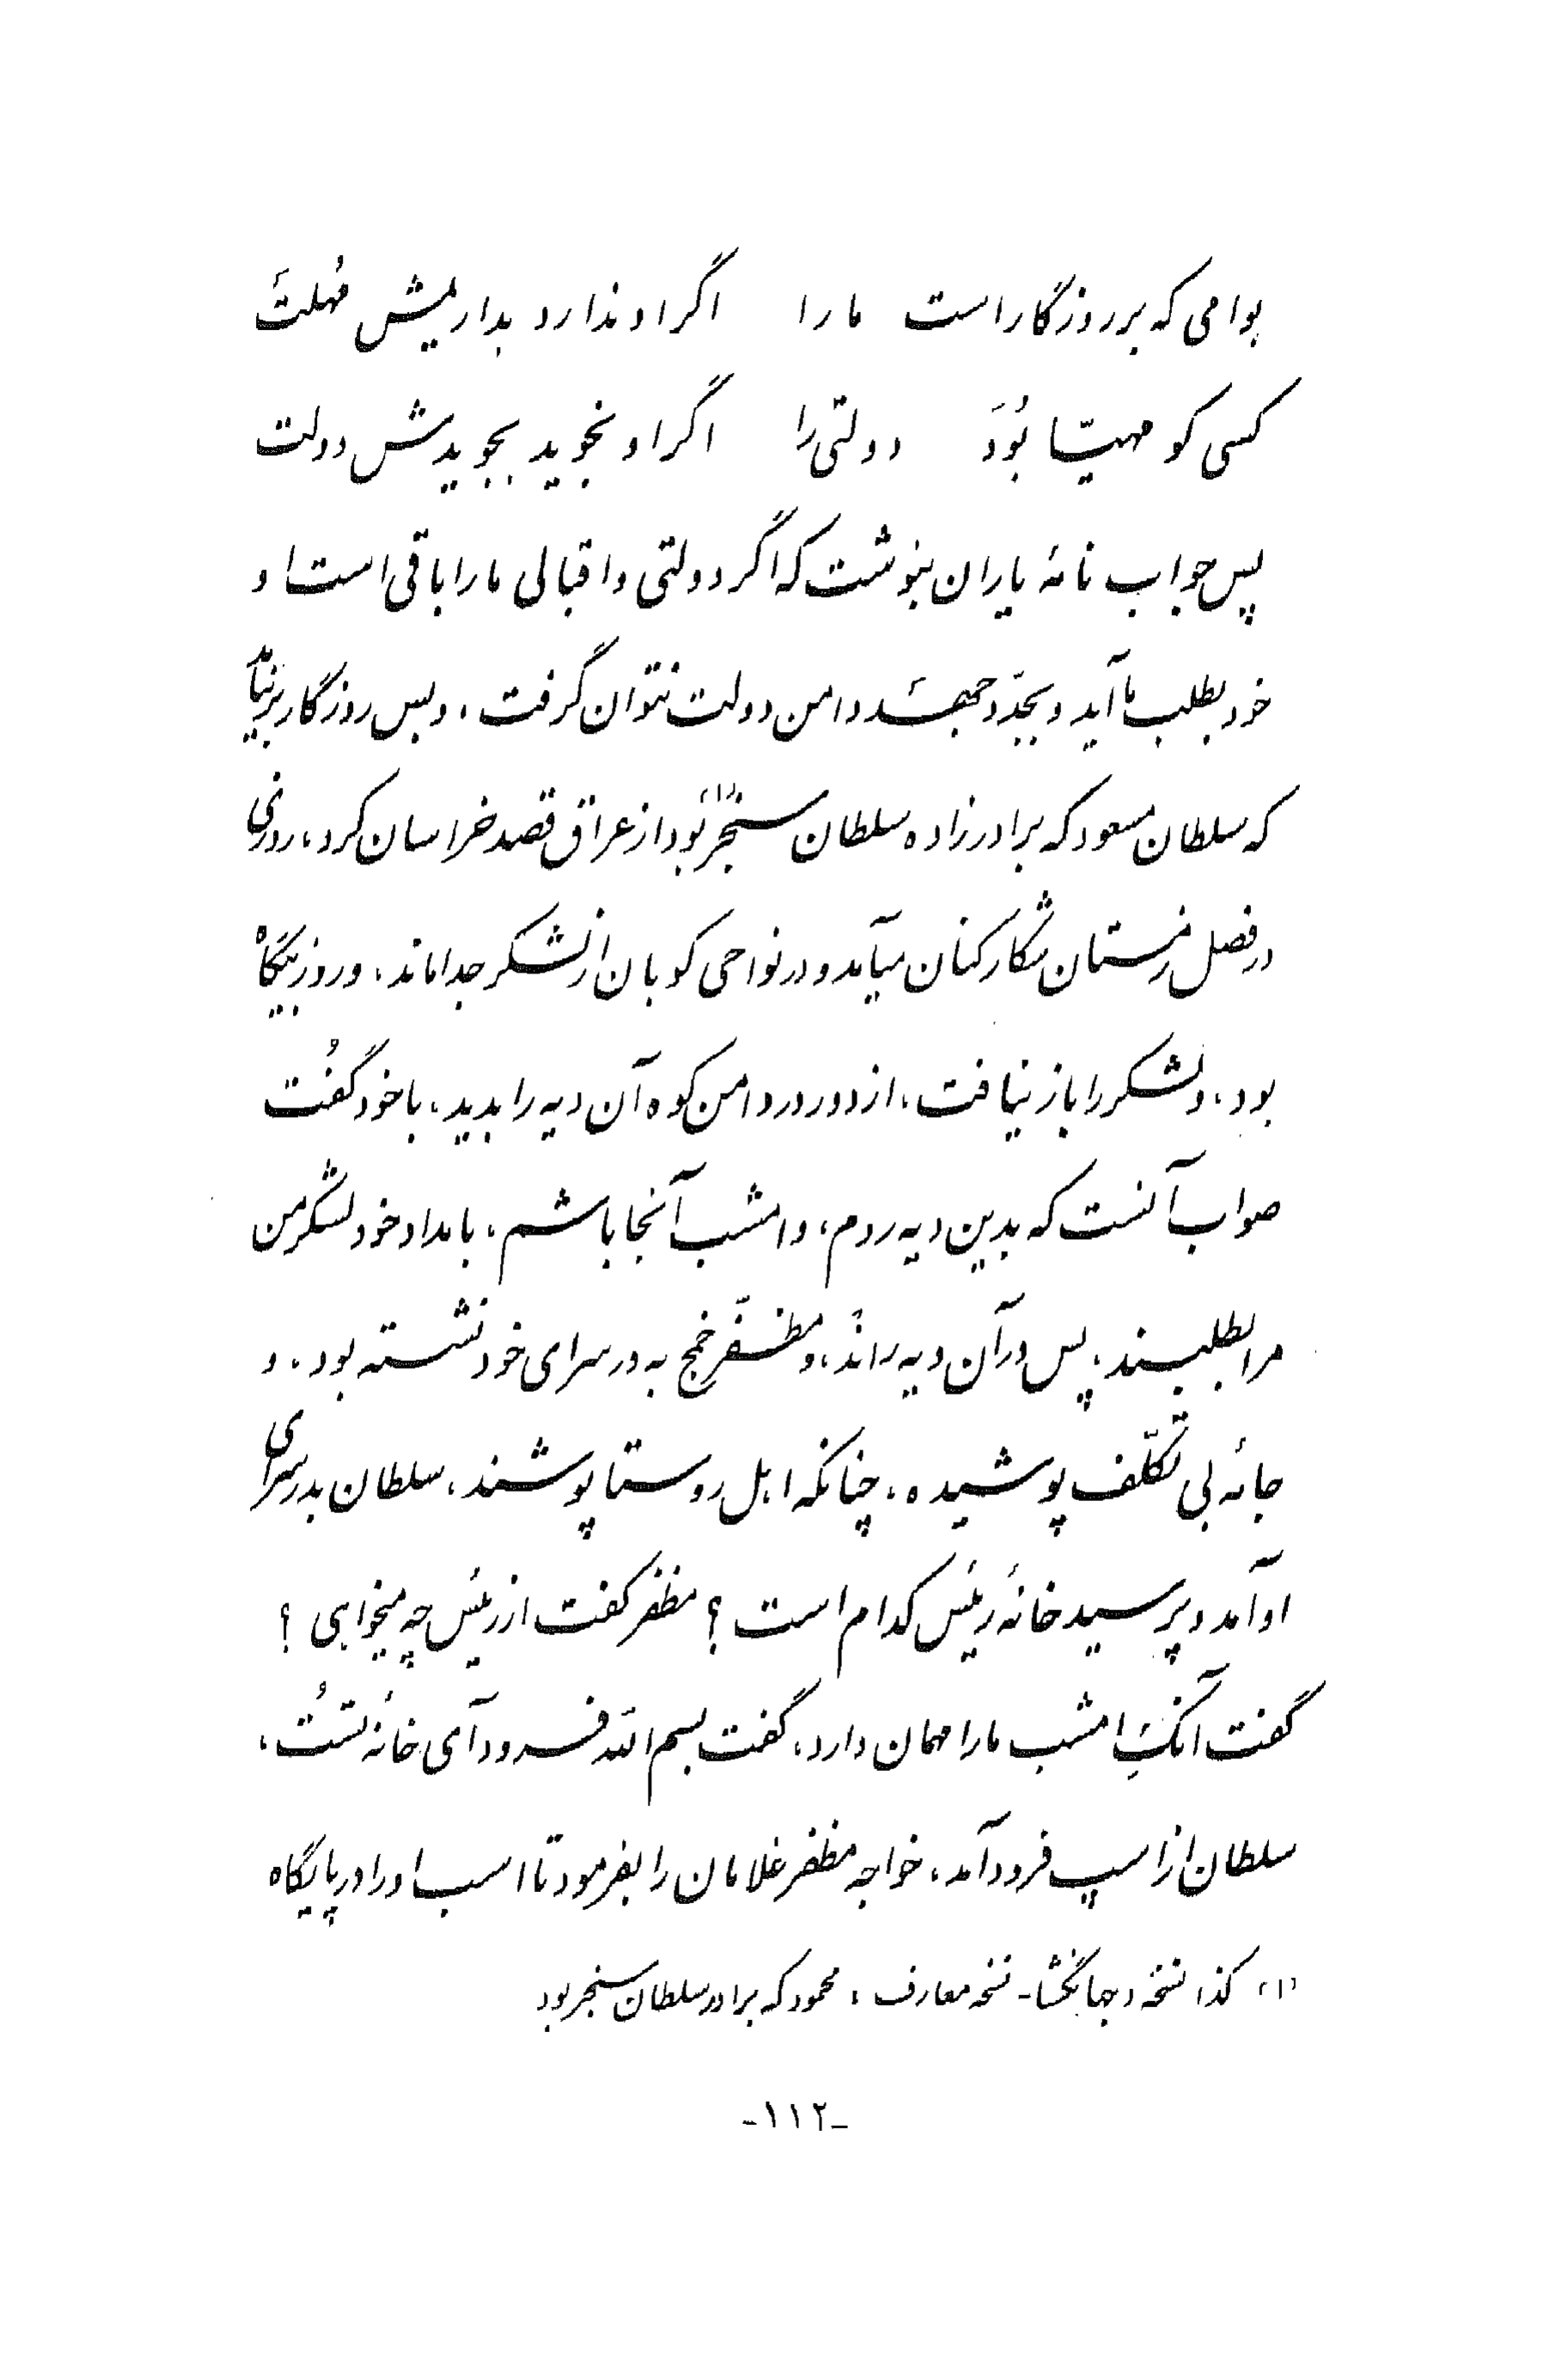 بوامی که بر روزگار است ما را اگر او ندارد بداریمش مُهلت
کسی کو مهیّا بُوَد دولتی را اگر او نجوید بجویدش دولت
پس جواب نامۀ یاران بنوشت که اگر دولتی و اقبالی ما را باقی است او
خود بطلب ما آید و بجدّ و جهد دامن دولت نتوان گرفت، و بس روزگار برنیامد
که سلطان مسعود که برادرزاده سلطان سنجر (۱) بود از عراق قصد خراسان کرد، روزی
در فصل زمستان شکارکنان میآمد و در نواحی کوبان از لشکر جدا ماند، و روز بیگاه
بود، و لشکر را باز نیافت، از دور در دامن کوه آن دیه را بدید، با خود گفت
صواب آنست که بدین دیه روم، و امشب آنجا باشم، بامداد خود لشگر من
مرا بطلبند، پس در آن دیه راند، و مظفّر خمج به در سرای خود نشسته بود، و
جامۀ بی تکلّف پوشیده، چنانکه اهل روستا پوشند، سلطان بدر سرای
او آمد و پرسید خانۀ رئیس کدام است؟ مظفر گفت از رئیس چه میخواهی؟
گفت آنک امشب ما را مهمان دارد، گفت بسم الله فرود آی خانۀ تست،
سلطان از اسپ فرود آمد، خواجه مظفر غلامان را بفرمود تا اسب او را در پایگاه
(۱) کذا نسخۀ د جهانگشا - نسخه معارف: محمود که برادر سلطان سنجر بود
-۱۱۲-